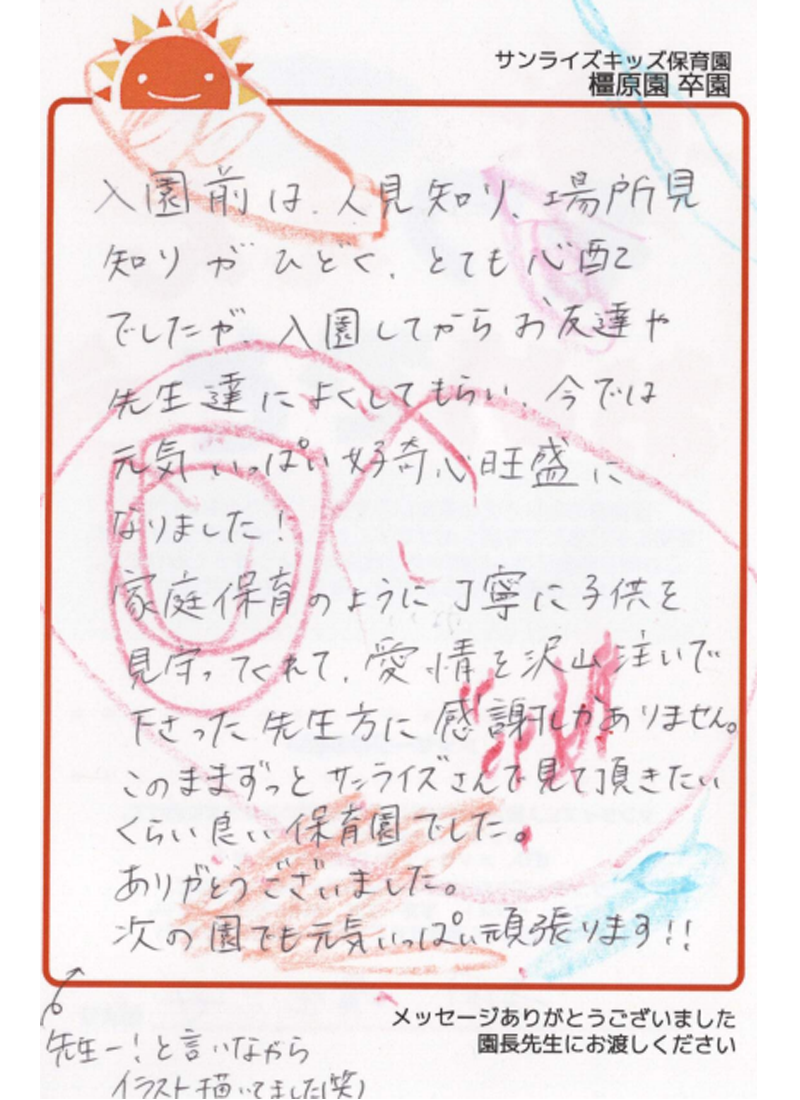 サンライズキッズ保育園
橿原園 卒園
入園前は、人見知り、場所見
知りがひどく、とても心配
でしたが、入園してからお友達や
先生達によくしてもらい、今では
元気いっぱい好奇心旺盛に
なりました!
家庭保育のように丁寧に子供を
見守ってくれて、愛情を沢山注いで
下さった先生方に感謝しかありません。
このままずっとサンライズさんで見て頂きたい
くらい良い保育園でした。
ありがとうございました。
次の園でも元気いっぱい頑張ります!!
メッセージありがとうございました
園長先生にお渡しください
先生ー!と言いながら
イラスト描いてました(笑)